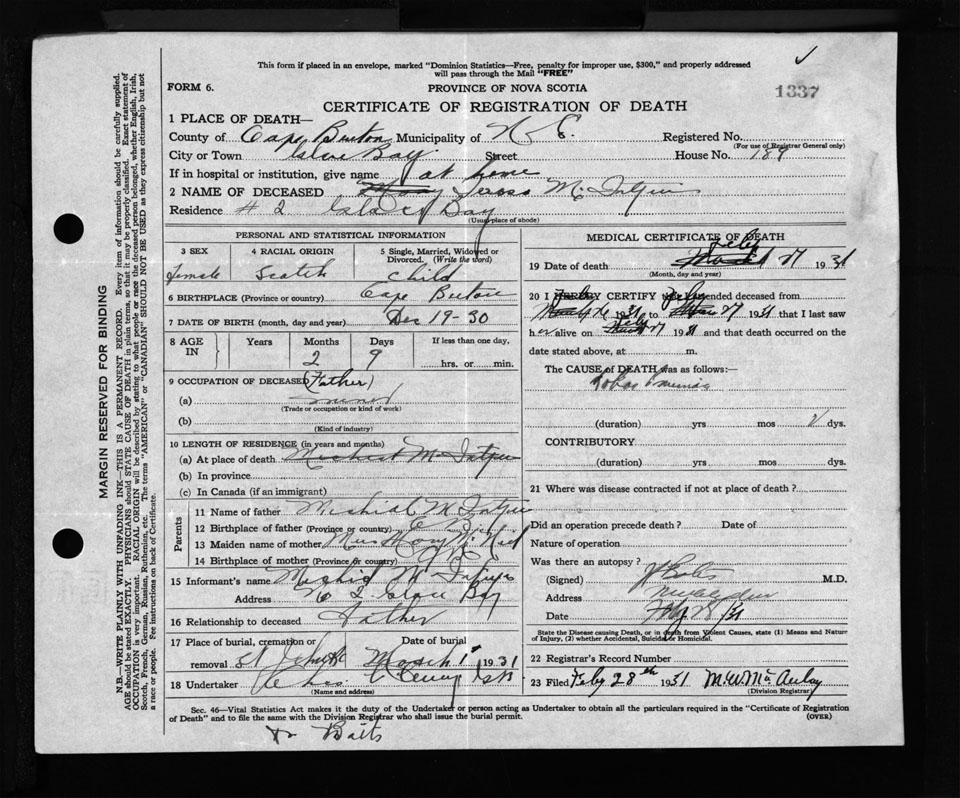 This form if placed in an envelope, marked "Dominion Statistics—Free, penalty for improper use, $300," and properly addressed
will pass through the Mail "FREE"
FORM 6.
PROVINCE OF NOVA SCOTIA
1337
CERTIFICATE OF REGISTRATION OF DEATH
1 PLACE OF DEATH—
County of Cape Breton Municipality of N S. Registered No.
(For use of Registrar General only)
City or Town Glace Bay Street House No. 189
If in hospital or institution, give name at home
2 NAME OF DECEASED Mary Teresa McIntyre
Residence # 2 Glace Bay
(Usual place of abode)
PERSONAL AND STATISTICAL INFORMATION
3 SEX 4 RACIAL ORIGIN 5 Single, Married, Widowed or
Divorced. (Write the word)
female Scotch child
6 BIRTHPLACE (Province or country) Cape Breton
7 DATE OF BIRTH (month, day and year) Dec 19-30
8 AGE IN Years Months Days If less than one day,
2 9 hrs. or min.
9 OCCUPATION OF DECEASED (Father)
(a) miner
(Trade or occupation or kind of work)
(b)
(Kind of industry)
10 LENGTH OF RESIDENCE (in years and months)
(a) At place of death McIntyre
(b) In province
(c) In Canada (if an immigrant)
Parents
11 Name of father McIntyre
12 Birthplace of father (Province or country) C B
13 Maiden name of mother Mrs Mary
14 Birthplace of mother (Province or country) C B
15 Informant's name McIntyre
Address Glace Bay
16 Relationship to deceased Father
17 Place of burial, cremation or Date of burial
removal St March 1st 1931
18 Undertaker Chas
(Name and address)
MEDICAL CERTIFICATE OF DEATH
19 Date of death Feby 27 1931
(Month, day and year)
20 I HEREBY CERTIFY that I attended deceased from
26 1931 to Feby 27 1931 that I last saw
her alive on Feby 27 1931 and that death occurred on the
date stated above, at m.
The CAUSE of DEATH was as follows:—
Lobar Pneumonia
(duration) yrs mos 2 dys.
CONTRIBUTORY
(duration) yrs. mos. dys.
21 Where was disease contracted if not at place of death?
Did an operation precede death? Date of
Nature of operation
Was there an autopsy?
(Signed) M.D.
Address
Date Feby 28/31
State the Disease causing Death, or in death from Violent Causes, state (1) Means and Nature
of Injury, (2) whether Accidental, Suicidal or Homicidal.
22 Registrar's Record Number
23 Filed Feby 28th 1931 McAulay
(Division Registrar)
Sec. 46—Vital Statistics Act makes it the duty of the Undertaker or person acting as Undertaker to obtain all the particulars required in the "Certificate of Registration
of Death" and to file the same with the Division Registrar who shall issue the burial permit. (OVER)
Dr Baits
MARGIN RESERVED FOR BINDING
N.B.—WRITE PLAINLY WITH UNFADING INK—THIS IS A PERMANENT RECORD. Every item of information should be carefully supplied.
AGE should be stated EXACTLY. PHYSICIANS should STATE CAUSE OF DEATH in plain terms, so that it may be properly classified. Exact statement of
OCCUPATION is very important. RACIAL ORIGIN will be described by stating to what people or race the deceased person belonged, whether English, Irish,
Scotch, French, German, Russian, Ruthenian, etc. The terms "AMERICAN" or "CANADIAN" SHOULD NOT BE USED as they express citizenship but not
a race or people. See instructions on back of Certificate.